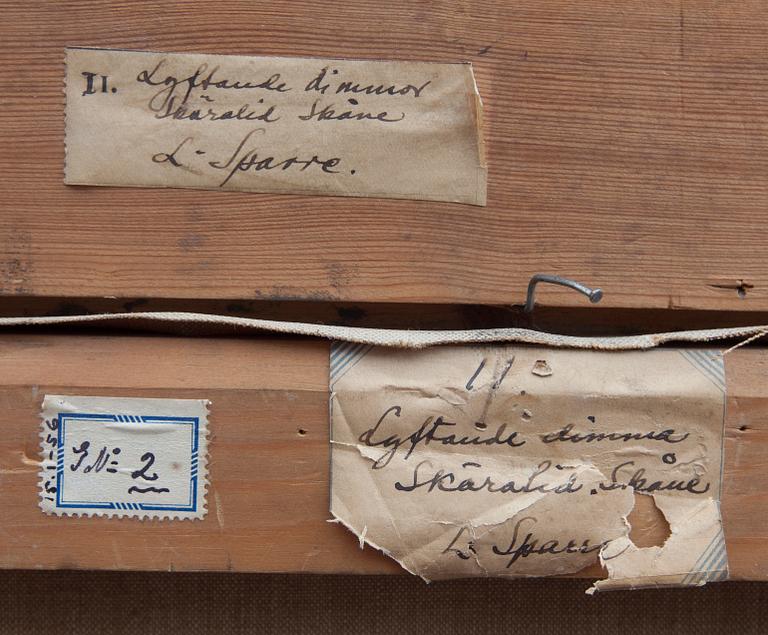 II. Lyftande dimmor
Skäralid Skåne
L. Sparre.
11.
Lyftande dimma
Skäralid. Skåne
L. Sparre
15.1-56
2